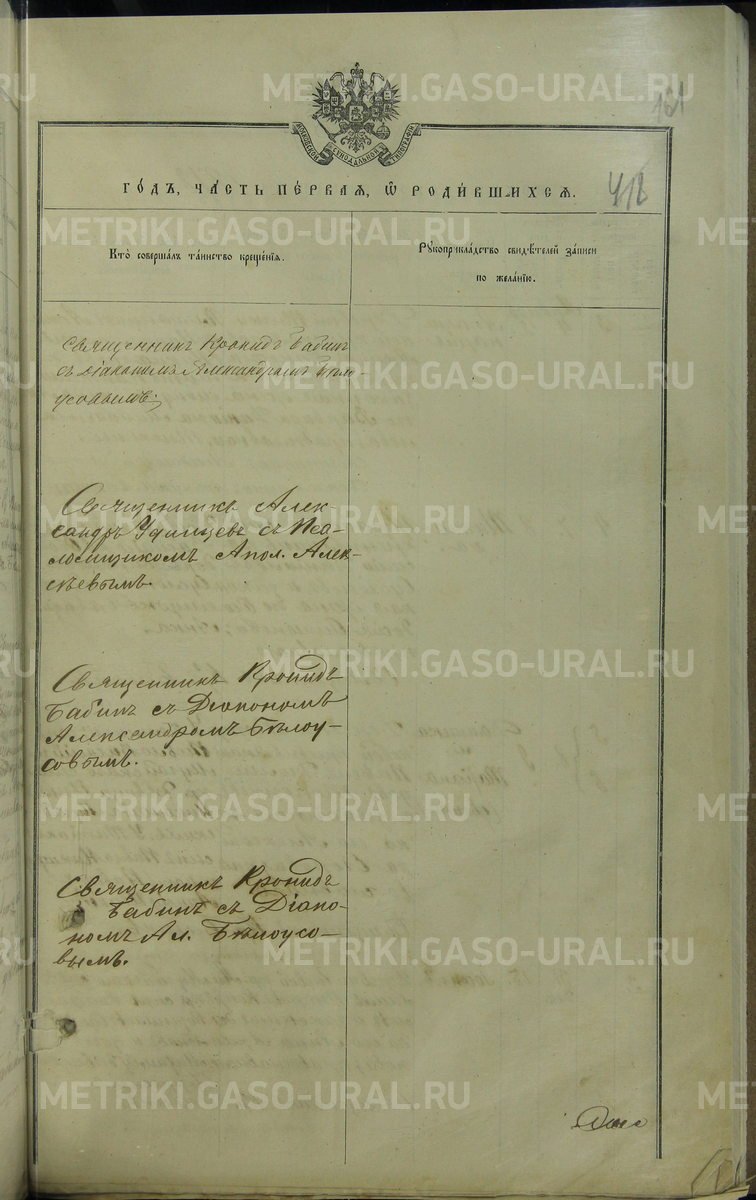 METRIKI.GASO-URAL.RU
161
МОСКОВСКОЙ СѴНОДАЛЬНОЙ ТИПОГРАФІИ
ГО́ДЪ, ЧА́СТЬ ПЕ́РВАѦ, Ѡ҆ РОДИ́ВШИХСѦ.
418
Кто̀ соверша́лъ та́инство креще́нїѧ.
Рꙋкоприкла́дство свидѣ́телей за́писи
по жела́нїю.
Священникъ Кронидъ Бабинъ
съ діакономъ Александромъ Бѣло-
усовымъ.
Священникъ Алек-
сандръ Удинцевъ съ Пса-
ломщикомъ Апол. Алек-
сѣевымъ.
Священникъ Кронидъ
Бабинъ съ Діакономъ
Александромъ Бѣлоу-
совымъ.
Священникъ Кронидъ
Бабинъ съ Діако-
номъ Ал. Бѣлоусо-
вымъ.